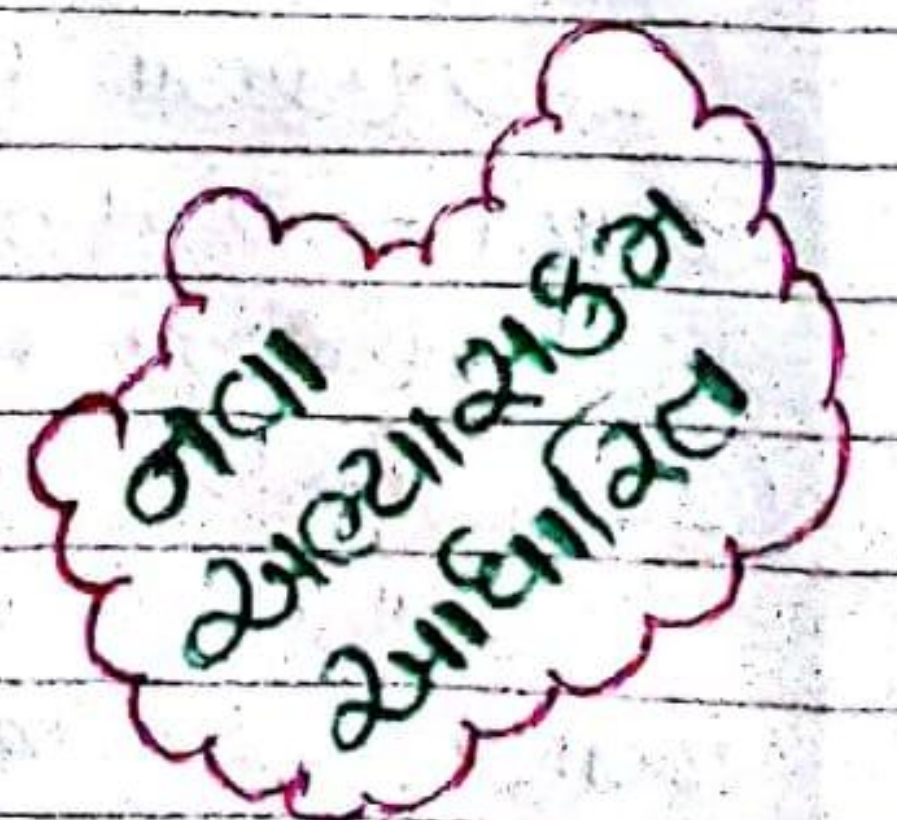 નવા
અભ્યાસક્રમ
આધારિત